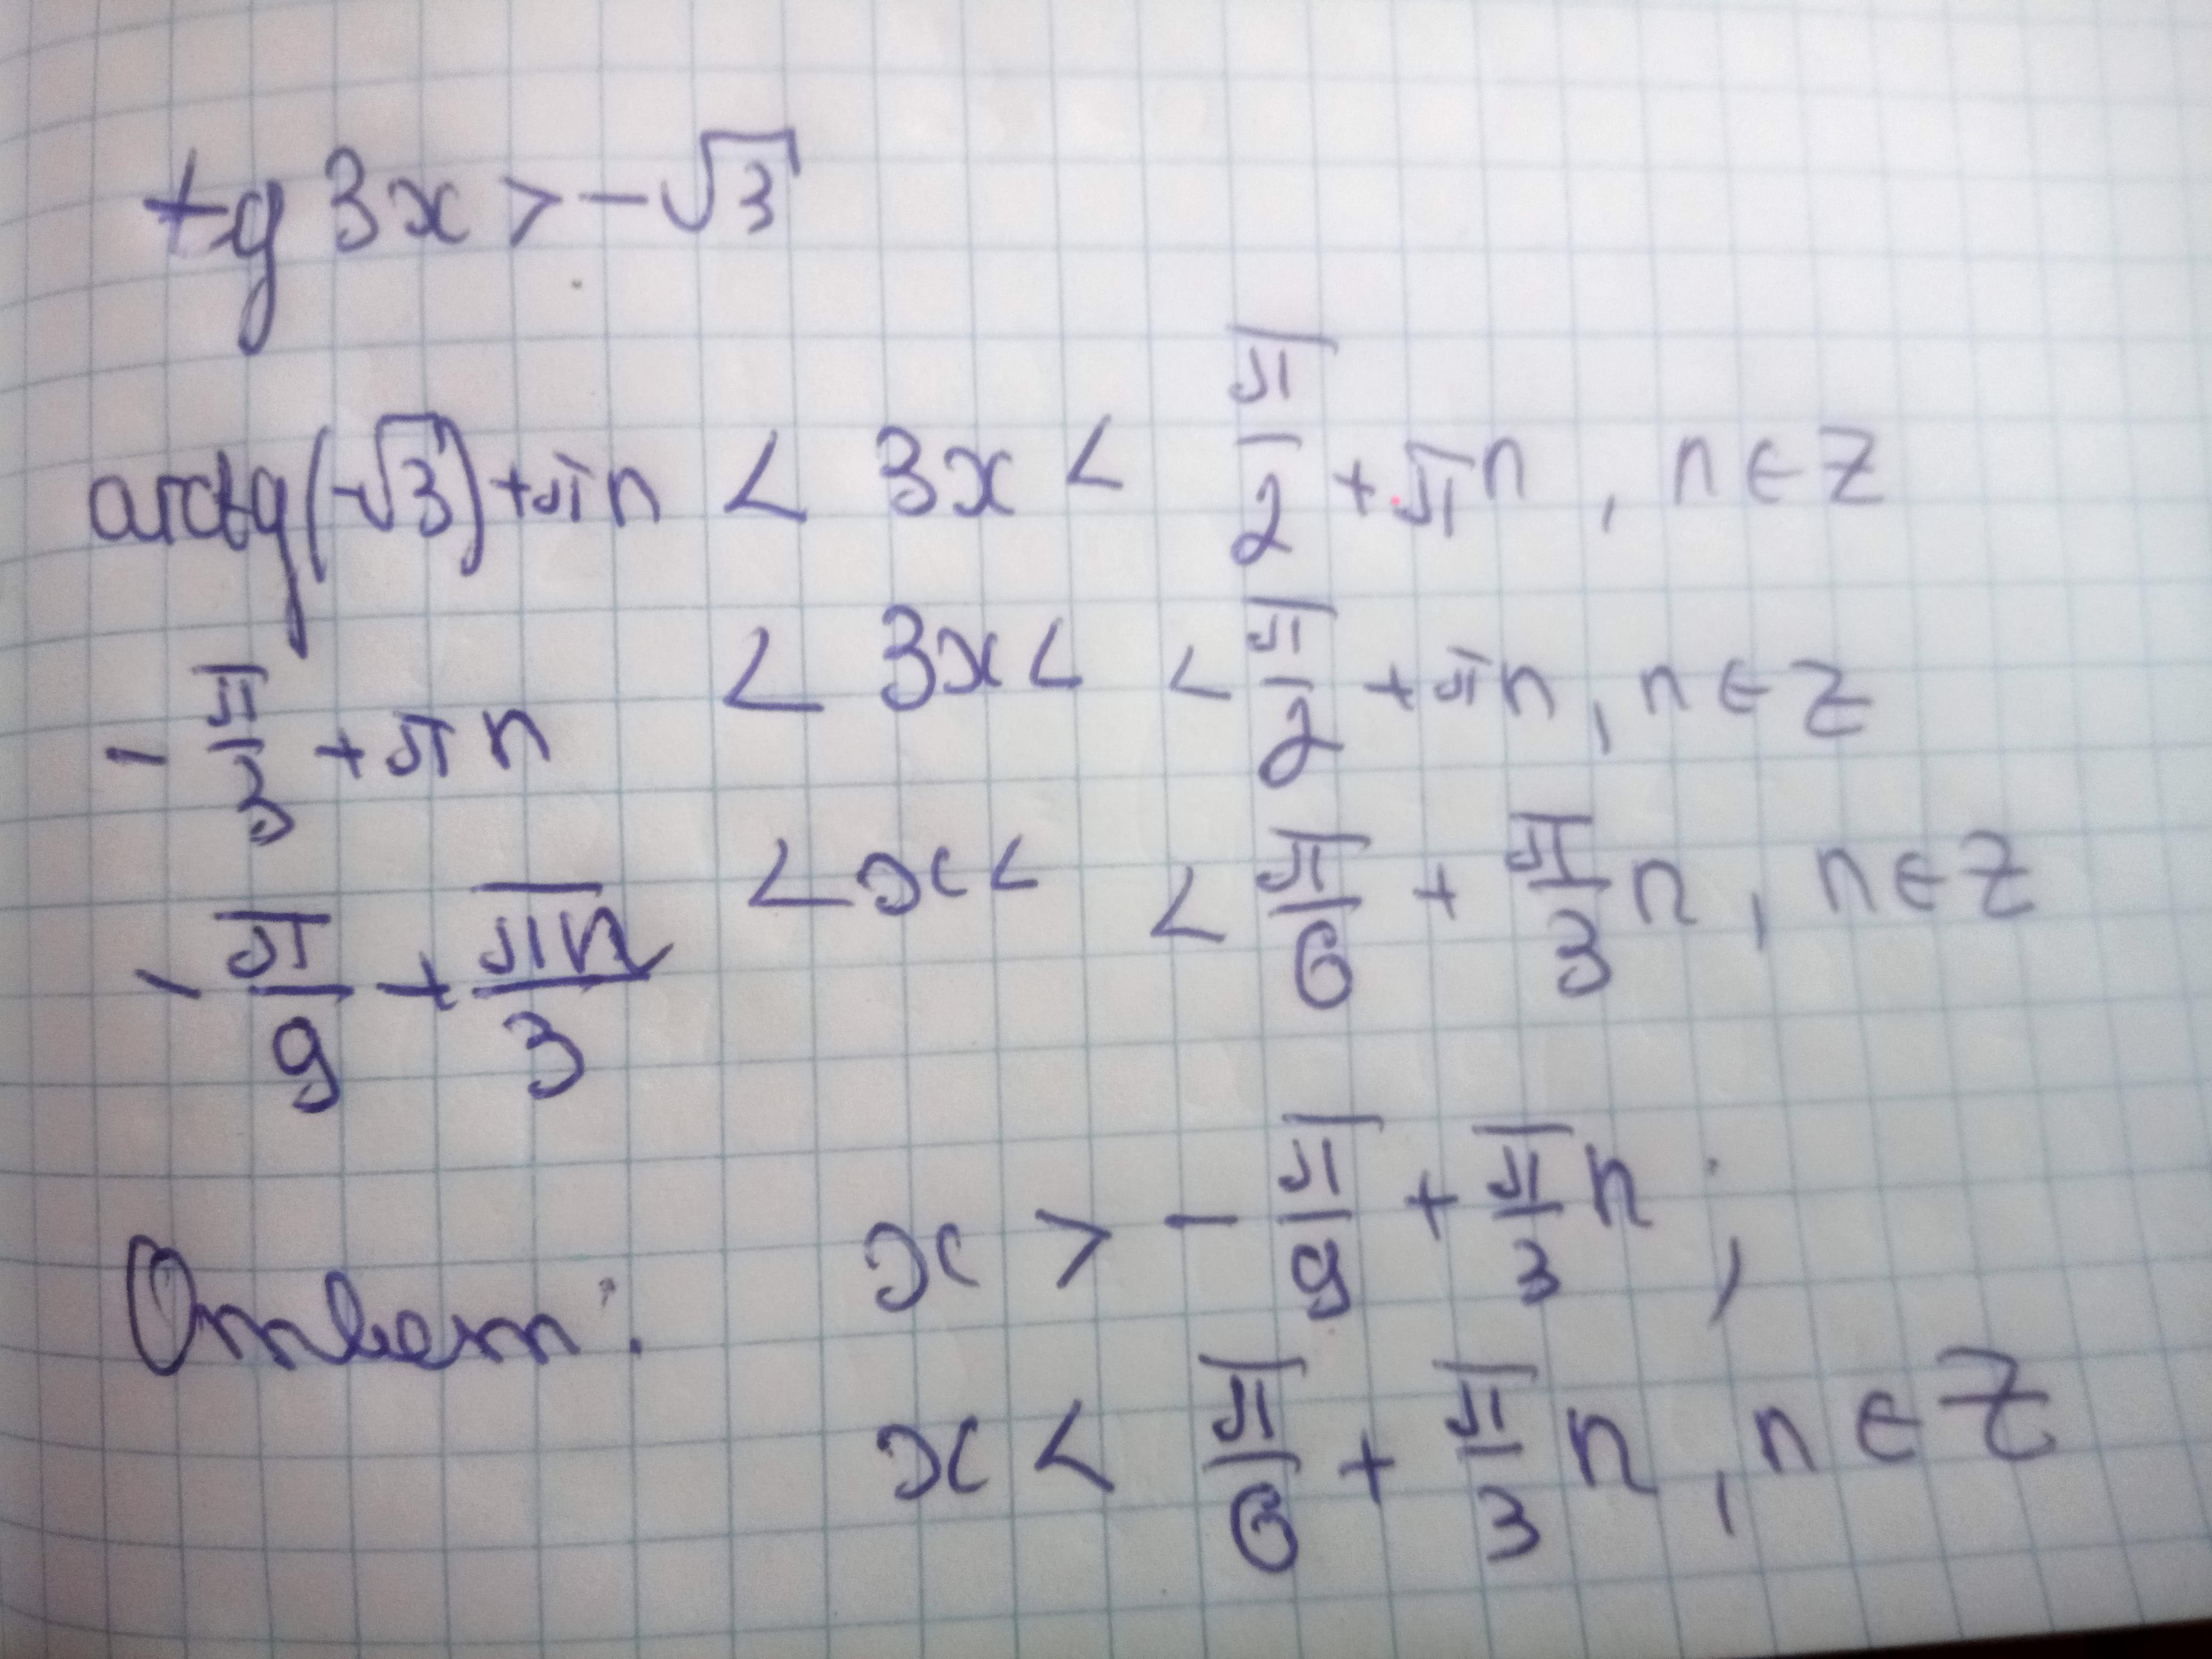 tg 3x > -√3
arctg(-√3) + πn < 3x < π/2 + πn, n ∈ Z
-π/3 + πn < 3x < < π/2 + πn, n ∈ Z
-π/9 + πn/3 < x < < π/6 + π/3 n, n ∈ Z
Ответ: x > -π/9 + π/3 n;
x < π/6 + π/3 n, n ∈ Z